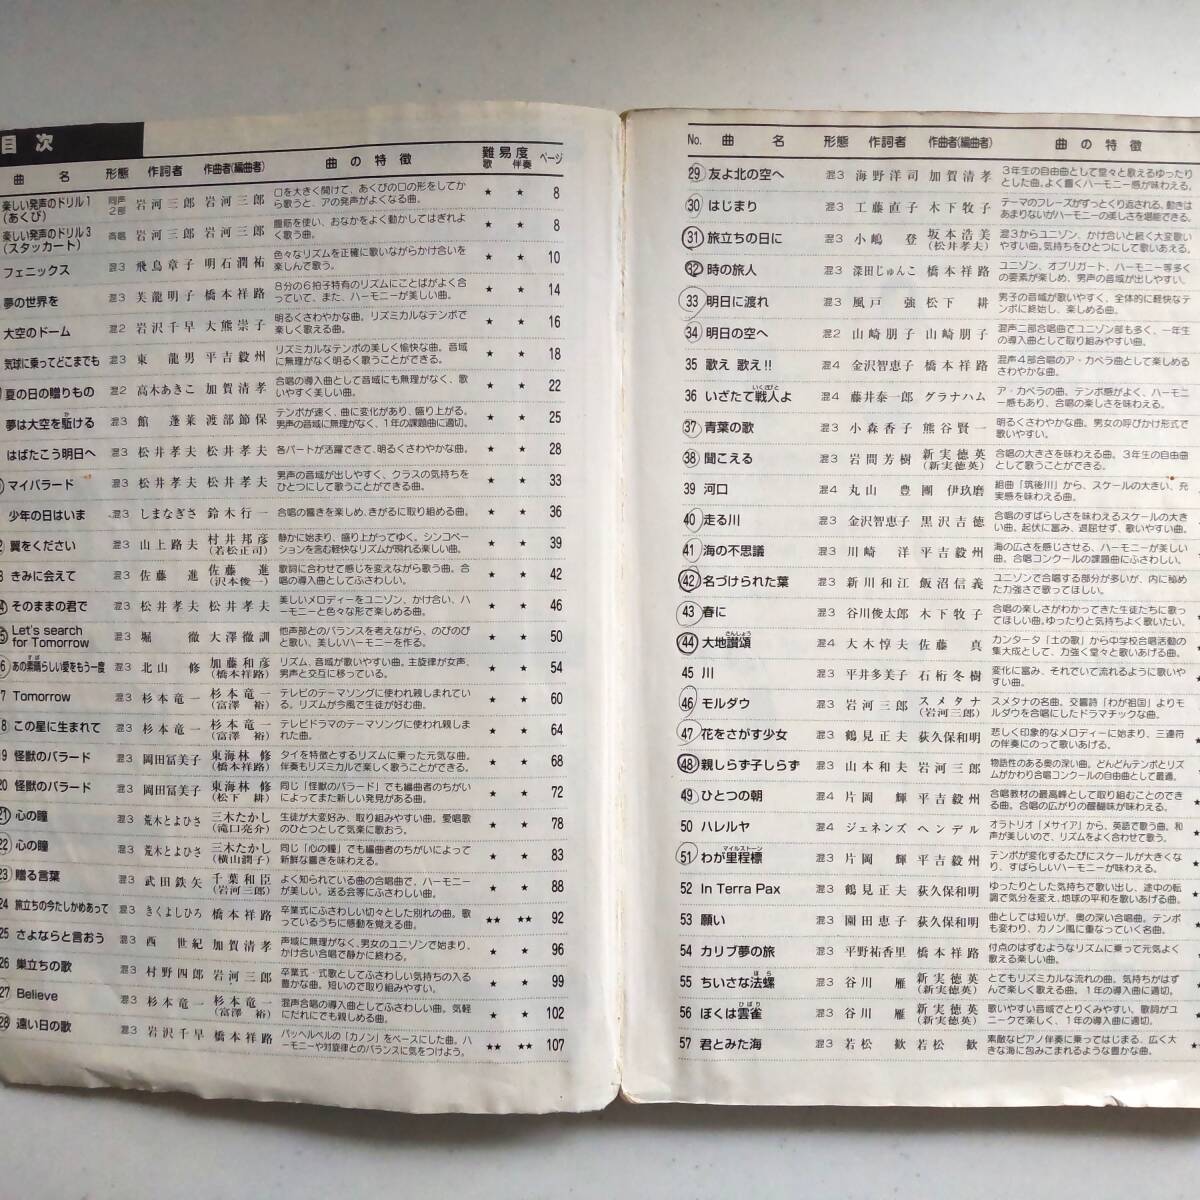 目次
曲名 形態 作詞者 作曲者(編曲者) 曲の特徴 難易度 歌 伴奏 ページ
楽しい発声のドリル1(あくび) 同声2部 岩河三郎 岩河三郎 口を大きく開けて、あくびの口の形をしてから歌うと、アの発声がよくなる曲。 ★ ★ 8
楽しい発声のドリル3(スタッカート) 斉唱 岩河三郎 岩河三郎 腹筋を使い、おなかをよく動かしてはぎれよく歌う曲。 ★ ★ 8
フェニックス 混3 飛鳥章子 明石潤祐 色々なリズムを正確に歌いながらかけ合いを楽しんで歌う。 ★ ★ 10
夢の世界を 混3 芙龍明子 橋本祥路 8分の6拍子特有のリズムにことばがよく合っていて、また、ハーモニーが美しい曲。 ★ ★ 14
大空のドーム 混2 岩沢千早 大熊崇子 明るくさわやかな曲。リズミカルなテンポで楽しく歌える曲。 ★ ★ 16
気球に乗ってどこまでも 混3 東龍男 平吉毅州 リズミカルなテンポの美しく愉快な曲。音域に無理がなく明るく歌うことができる。 ★ ★ 18
夏の日の贈りもの 混2 高木あきこ 加賀清孝 合唱の導入曲として音域にも無理がなく、歌いやすく美しい曲。 ★ ★ 22
夢は大空を駆ける 混3 館蓬莱 渡部節保 テンポが速く、曲に変化があり、盛り上がる。男声の音域に無理がなく、1年の課題曲に適切。 ★ ★ 25
はばたこう明日へ 混3 松井孝夫 松井孝夫 各パートが活躍できて、明るくさわやかな曲。 ★ ★ 28
マイバラード 混3 松井孝夫 松井孝夫 男声の音域が出しやすく、クラスの気持ちをひとつにして歌うことができる曲。 ★ ★ 33
少年の日はいま 混3 しまなぎさ 鈴木行一 合唱の響きを楽しめ、きがるに取り組める曲。 ★ ★ 36
2 翼をください 混3 山上路夫 村井邦彦(若松正司) 静かに始まり、盛り上がってゆく。シンコペーションを含む軽快なリズムが現れる楽しい曲。 ★ ★ 39
3 きみに会えて 混3 佐藤進 佐藤進(沢本俊一) 歌詞に合わせて感じを変えながら歌う曲。合唱の導入曲としてふさわしい。 ★ ★ 42
4 そのままの君で 混3 松井孝夫 松井孝夫 美しいメロディーをユニゾン、かけ合い、ハーモニーと色々な形で楽しめる曲。 ★ ★ 46
5 Let's search for Tomorrow 混3 堀徹 大澤徹訓 他声部とのバランスを考えながら、のびのびと歌い、美しいハーモニーを作る。 ★ ★ 50
6 あの素晴らしい愛をもう一度 混3 北山修 加藤和彦(橋本祥路) リズム、音域が歌いやすい曲。主旋律が女声、男声と交互に移っている。 ★ ★ 54
7 Tomorrow 混3 杉本竜一 杉本竜一(富澤裕) テレビのテーマソングに使われ親しまれている。リズムが今風で生徒が好む曲。 ★ ★ 60
8 この星に生まれて 混3 杉本竜一 杉本竜一(富澤裕) テレビドラマのテーマソングに使われ親しまれた曲。 ★ ★ 64
19 怪獣のバラード 混3 岡田冨美子 東海林修(橋本祥路) タイを特徴とするリズムに乗った元気な曲。伴奏もリズミカルで楽しく歌うことができる。 ★ ★ 68
20 怪獣のバラード 混3 岡田冨美子 東海林修(松下耕) 同じ「怪獣のバラード」でも編曲者のちがいによってまた新しい発見がある曲。 ★ ★ 72
21 心の瞳 混3 荒木とよひさ 三木たかし(滝口亮介) 生徒が大変好み、取り組みやすい曲。愛唱歌のひとつとして気楽に歌おう。 ★ ★ 78
22 心の瞳 混3 荒木とよひさ 三木たかし(横山潤子) 同じ「心の瞳」でも編曲者のちがいによって新鮮な響きを味わえる。 ★ ★ 83
23 贈る言葉 混3 武田鉄矢 千葉和臣(岩河三郎) よく知られている曲の合唱曲で、ハーモニーが美しい。送る会等にふさわしい曲。 ★ ★ 88
24 旅立ちの今たしかめあって 混3 きくよしひろ 橋本祥路 卒業式にふさわしい切々とした別れの曲。歌っているうちに感動を覚える曲。 ★★ ★★ 92
25 さよならと言おう 混3 西世紀 加賀清孝 声域に無理がなく、男女のユニゾンで始まり、かけ合い合唱で静かに終わる。 ★ ★ 96
26 巣立ちの歌 混3 村野四郎 岩河三郎 卒業式・式歌としてふさわしい気持ちの入る豊かな曲。短いので取り組みやすい。 ★ ★ 99
27 Believe 混3 杉本竜一 杉本竜一(富澤裕) 混声合唱の導入曲としてふさわしい曲。気軽にだれにでも親しめる曲。 ★ ★ 102
28 遠い日の歌 混3 岩沢千早 橋本祥路 パッヘルベルの「カノン」をベースにした曲。ハーモニーや対旋律とのバランスに気をつけよう。 ★★ ★★ 107
No. 曲名 形態 作詞者 作曲者(編曲者) 曲の特徴
29 友よ北の空へ 混3 海野洋司 加賀清孝 3年生の自由曲として堂々と歌えるゆったりとした曲。よく響くハーモニー感が味わえる。
30 はじまり 混3 工藤直子 木下牧子 テーマのフレーズがずっとくり返される。動きはあまりないがハーモニーの美しさを堪能できる。
31 旅立ちの日に 混3 小嶋登 坂本浩美(松井孝夫) 混3からユニゾン、かけ合いと続く大変歌いやすい曲。気持ちをひとつにして歌いあえる。
32 時の旅人 混3 深田じゅんこ 橋本祥路 ユニゾン、オブリガート、ハーモニー等多くの要素が楽しめ、男声の音域が適切。
33 明日に渡れ 混3 風戸強 松下耕 男子の音域が歌いやすく、全体的に軽快なテンポに終始し、楽しめる曲。
34 明日の空へ 混2 山崎朋子 山崎朋子 混声二部合唱曲でユニゾン部も多く、一年生の導入曲として取り組みやすい曲。
35 歌え 歌え!! 混4 金沢智恵子 橋本祥路 混声4部合唱のア・カペラ曲として楽しめるさわやかな曲。
36 いざたて戦人よ いくさびと 混4 藤井泰一郎 グラナハム ア・カペラの曲。テンポ感がよく、ハーモニー感もあり、合唱の楽しさを味わえる。
37 青葉の歌 混3 小森香子 熊谷賢一 明るくさわやかな曲。男女の呼びかけ形式で歌いやすい。
38 聞こえる 混3 岩間芳樹 新実徳英(新実徳英) 合唱の大きさを味わえる曲。3年生の自由曲として歌うことができる。
39 河口 混4 丸山豊 團伊玖磨 組曲「筑後川」から、スケールの大きい、充実感を味わえる曲。
40 走る川 混3 金沢智恵子 黒沢吉徳 合唱のすばらしさを味わえるスケールの大きい曲。起伏に富み、退屈せず、歌いやすい曲。
41 海の不思議 混3 川崎洋 平吉毅州 海の広さを感じさせる、ハーモニーが美しい曲。合唱コンクールの課題曲にふさわしい。
42 名づけられた葉 混3 新川和江 飯沼信義 ユニゾンで合唱する部分が多いが、内に秘めた力強さで歌ってほしい。
43 春に 混3 谷川俊太郎 木下牧子 合唱の楽しさがわかってきた生徒たちに歌ってほしい曲。ゆったりと気持ちよく歌いたい。
44 大地讃頌 さんしょう 混4 大木惇夫 佐藤眞 カンタータ「土の歌」から中学校合唱活動の集大成として、力強く堂々と歌いあげる曲。
45 川 混3 平井多美子 石桁冬樹 変化に富み、それでいて流れるように歌いやすい曲。
46 モルダウ 混3 岩河三郎 スメタナ(岩河三郎) スメタナの名曲。交響詩「わが祖国」よりモルダウを合唱にしたドラマチックな曲。
47 花をさがす少女 混3 鶴見正夫 荻久保和明 悲しく印象的なメロディーに始まり、三連符の伴奏にのって歌いあげる。
48 親しらず子しらず 混3 山本和夫 岩河三郎 物語性のある奥の深い曲。どんどんテンポとリズムがかわり合唱コンクールの自由曲として最適。
49 ひとつの朝 混4 片岡輝 平吉毅州 合唱教材の最高峰として取り組むことのできる曲。合唱の広がりの醍醐味が味わえる。
50 ハレルヤ 混4 ジェネンズ ヘンデル オラトリオ「メサイア」から、英語で歌う曲。和声が美しいので、リズムをよく合わせて歌う。
51 わが里程標 マイルストーン 混3 片岡輝 平吉毅州 テンポが変化するたびにスケールが大きくなり、すばらしいハーモニーが味わえる。
52 In Terra Pax 混3 鶴見正夫 荻久保和明 ゆったりとした気持ちで歌い出し、途中の転調で気分を変え、地球の平和を歌いあげる。
53 願い 混3 園田恵子 荻久保和明 曲としては短いが、奥の深い合唱曲。テンポも変わり、カノン風に重なっていく名曲。
54 カリブ夢の旅 混3 平野祐香里 橋本祥路 付点のはずむようなリズムに乗って元気よく歌える楽しい曲。
55 ちいさな法螺 ほら 混3 谷川雁 新実徳英(新実徳英) とてもリズミカルな流れの曲。気持ちがはずんで楽しく歌える曲。1年の導入曲に適切。
56 ぼくは雲雀 ひばり 混3 谷川雁 新実徳英(新実徳英) 歌いやすい音域でとりくみやすい。歌詞がユニークで楽しく、1年の導入曲に適切。
57 君とみた海 混3 若松歓 若松歓 素敵なピアノ伴奏に乗ってはじまる、広く大きな海に包みこまれるような豊かな曲。